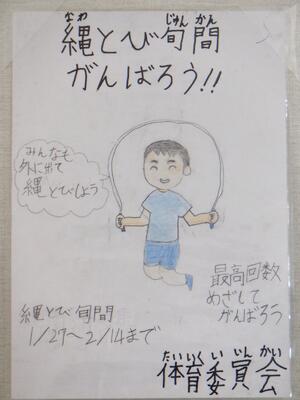 なわ じゅんかん
縄とび旬間
がんばろう!!
みんなも
外に出て
縄とびしよう
縄とび旬間
1/27〜2/14まで
最高回数
めざして
がんばろう
たいいくいいんかい
体育委員会